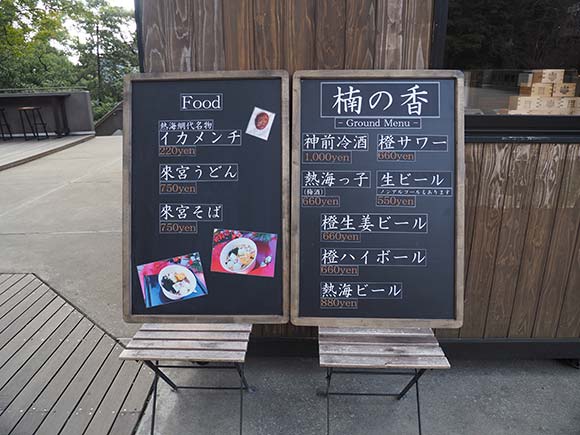 Food
熱海網代名物
イカメンチ
220yen
來宮うどん
750yen
來宮そば
750yen
楠の香
- Ground Menu -
神前冷酒
1,000yen
橙サワー
660yen
熱海っ子
(梅酒)
660yen
生ビール
ノンアルコールもあります
550yen
橙生姜ビール
660yen
橙ハイボール
660yen
熱海ビール
880yen